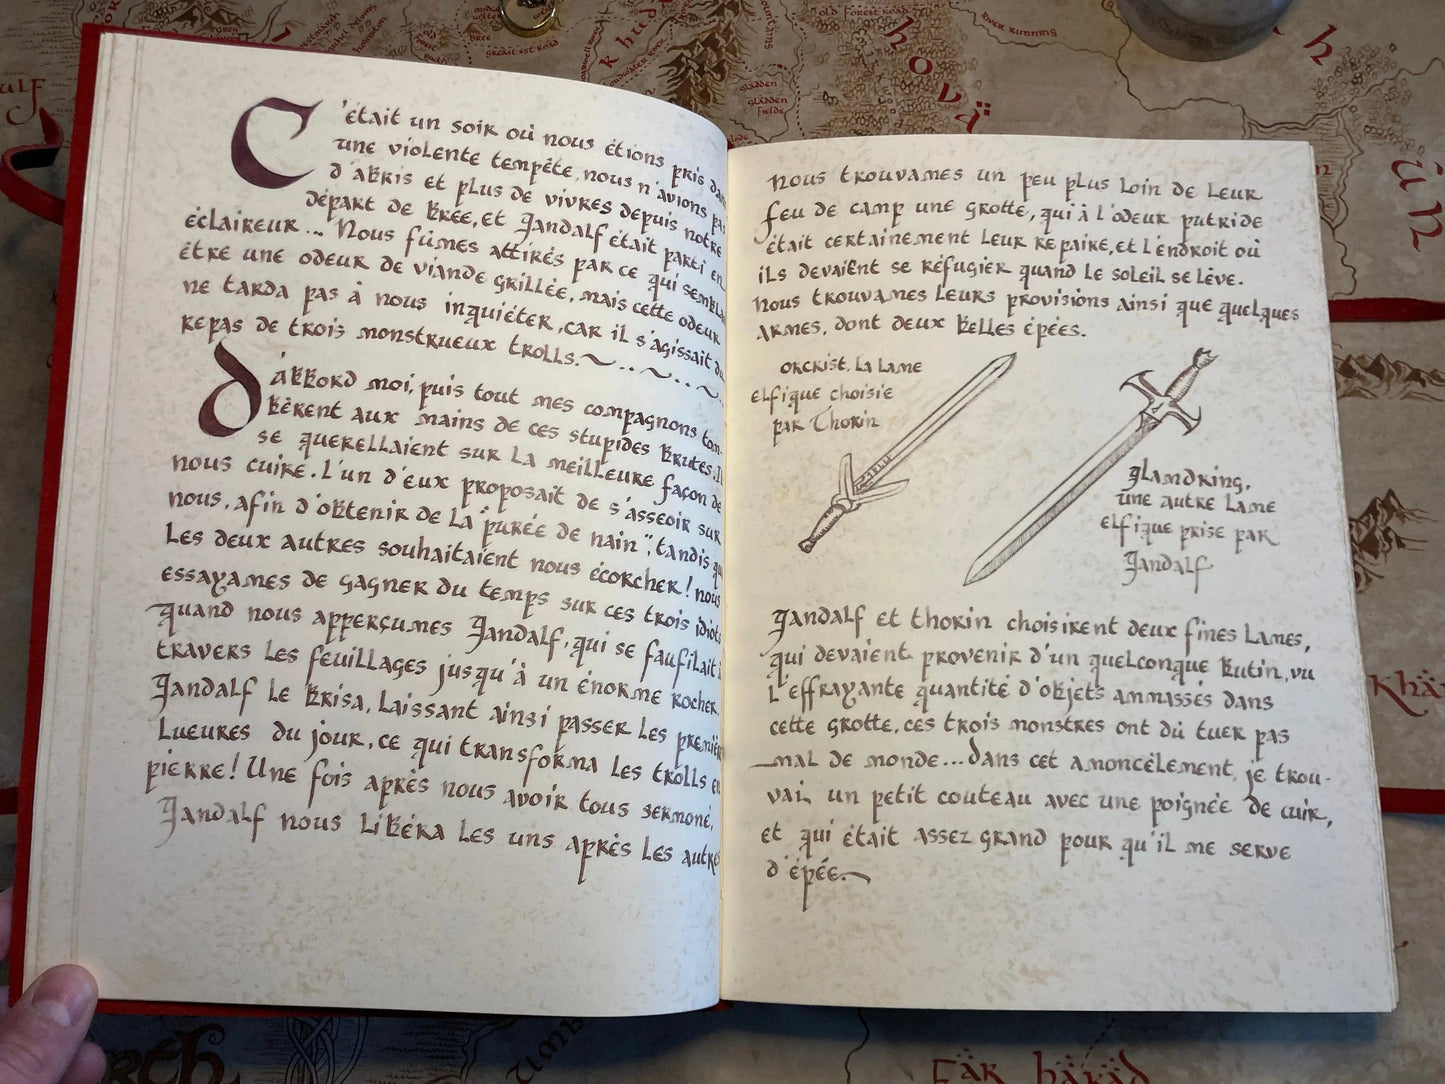 C'était un soir où nous étions pris dans
une violente tempête, nous n'avions pas
d'abris et plus de vivres depuis notre
départ de Bree, et Gandalf était parti en
éclaireur... Nous fûmes attirés par ce qui sembla
être une odeur de viande grillée, mais cette odeur
ne tarda pas à nous inquiéter, car il s'agissait du
repas de trois monstrueux trolls.~..~..~
d'abbord moi, puis tout mes compagnons tom-
bèrent aux mains de ces stupides brutes. Il
se querellaient sur la meilleure façon de
nous cuire. L'un d'eux proposait de s'asseoir sur
nous, afin d'obtenir de la "purée de nain", tandis que
les deux autres souhaitaient nous écorcher! nous
essayames de gagner du temps sur ces trois idiots
quand nous apperçumes Gandalf, qui se faufilait à
travers les feuillages jusqu'à un énorme rocher.
Gandalf le brisa, laissant ainsi passer les premièr
lueures du jour, ce qui transforma les trolls en
pierre! Une fois après nous avoir tous sermoné,
Gandalf nous libéra les uns après les autres
Nous trouvames un peu plus loin de leur
feu de camp une grotte, qui à l'odeur putride
était certainement leur repaire, et l'endroit où
ils devaient se réfugier quand le soleil se lève.
Nous trouvames leurs provisions ainsi que quelques
armes, dont deux belles épées.
orcrist, la lame
elfique choisie
par Thorin
Glamdring,
une autre lame
elfique prise par
Gandalf
Gandalf et thorin choisirent deux fines lames,
qui devaient provenir d'un quelconque butin, vu
l'effrayante quantité d'objets ammassés dans
cette grotte, ces trois monstres ont dû tuer pas
mal de monde... Dans cet amoncèlement, je trou-
vai un petit couteau avec une poignée de cuir,
et qui était assez grand pour qu'il me serve
d'épée.
Bree
great east road
old forest road
river running
gladden
Gladden
Fields
khud
hova
ûn
khä
umb
fär häräd